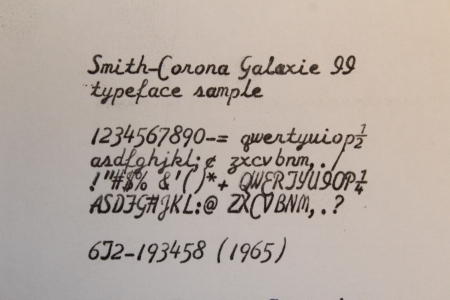 Smith-Corona Galaxie II
typeface sample
1234567890-= qwertyuiop½
asdfghjkl;¢ zxcvbnm,./
!"#$% &'()*+ QWERTYUIOP¼
ASDFGHJKL:@ ZXCVBNM,.?
6T2-193458 (1965)